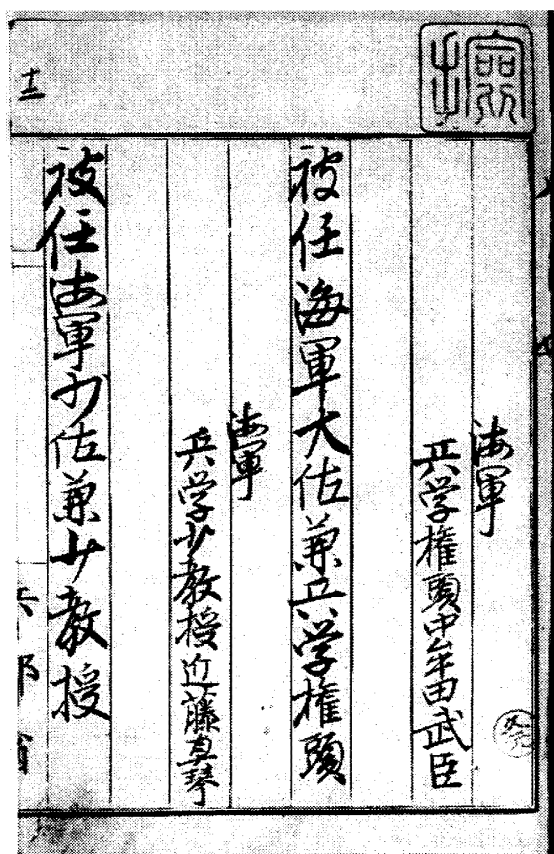 海軍
兵学権頭中牟田武臣
被任海軍大佐兼兵学権頭
海軍
兵学少教授近藤真琴
被任海軍少佐兼少教授